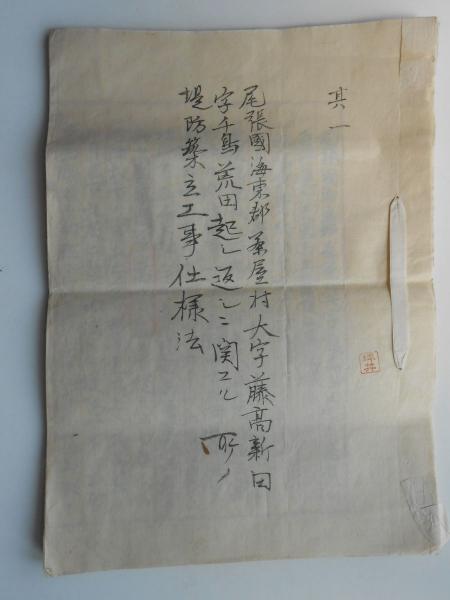 其一
尾張國海東郡茶屋村大字藤高新田
字千鳥荒田起シ返シニ関スル所ノ
堤防築立工事仕様法